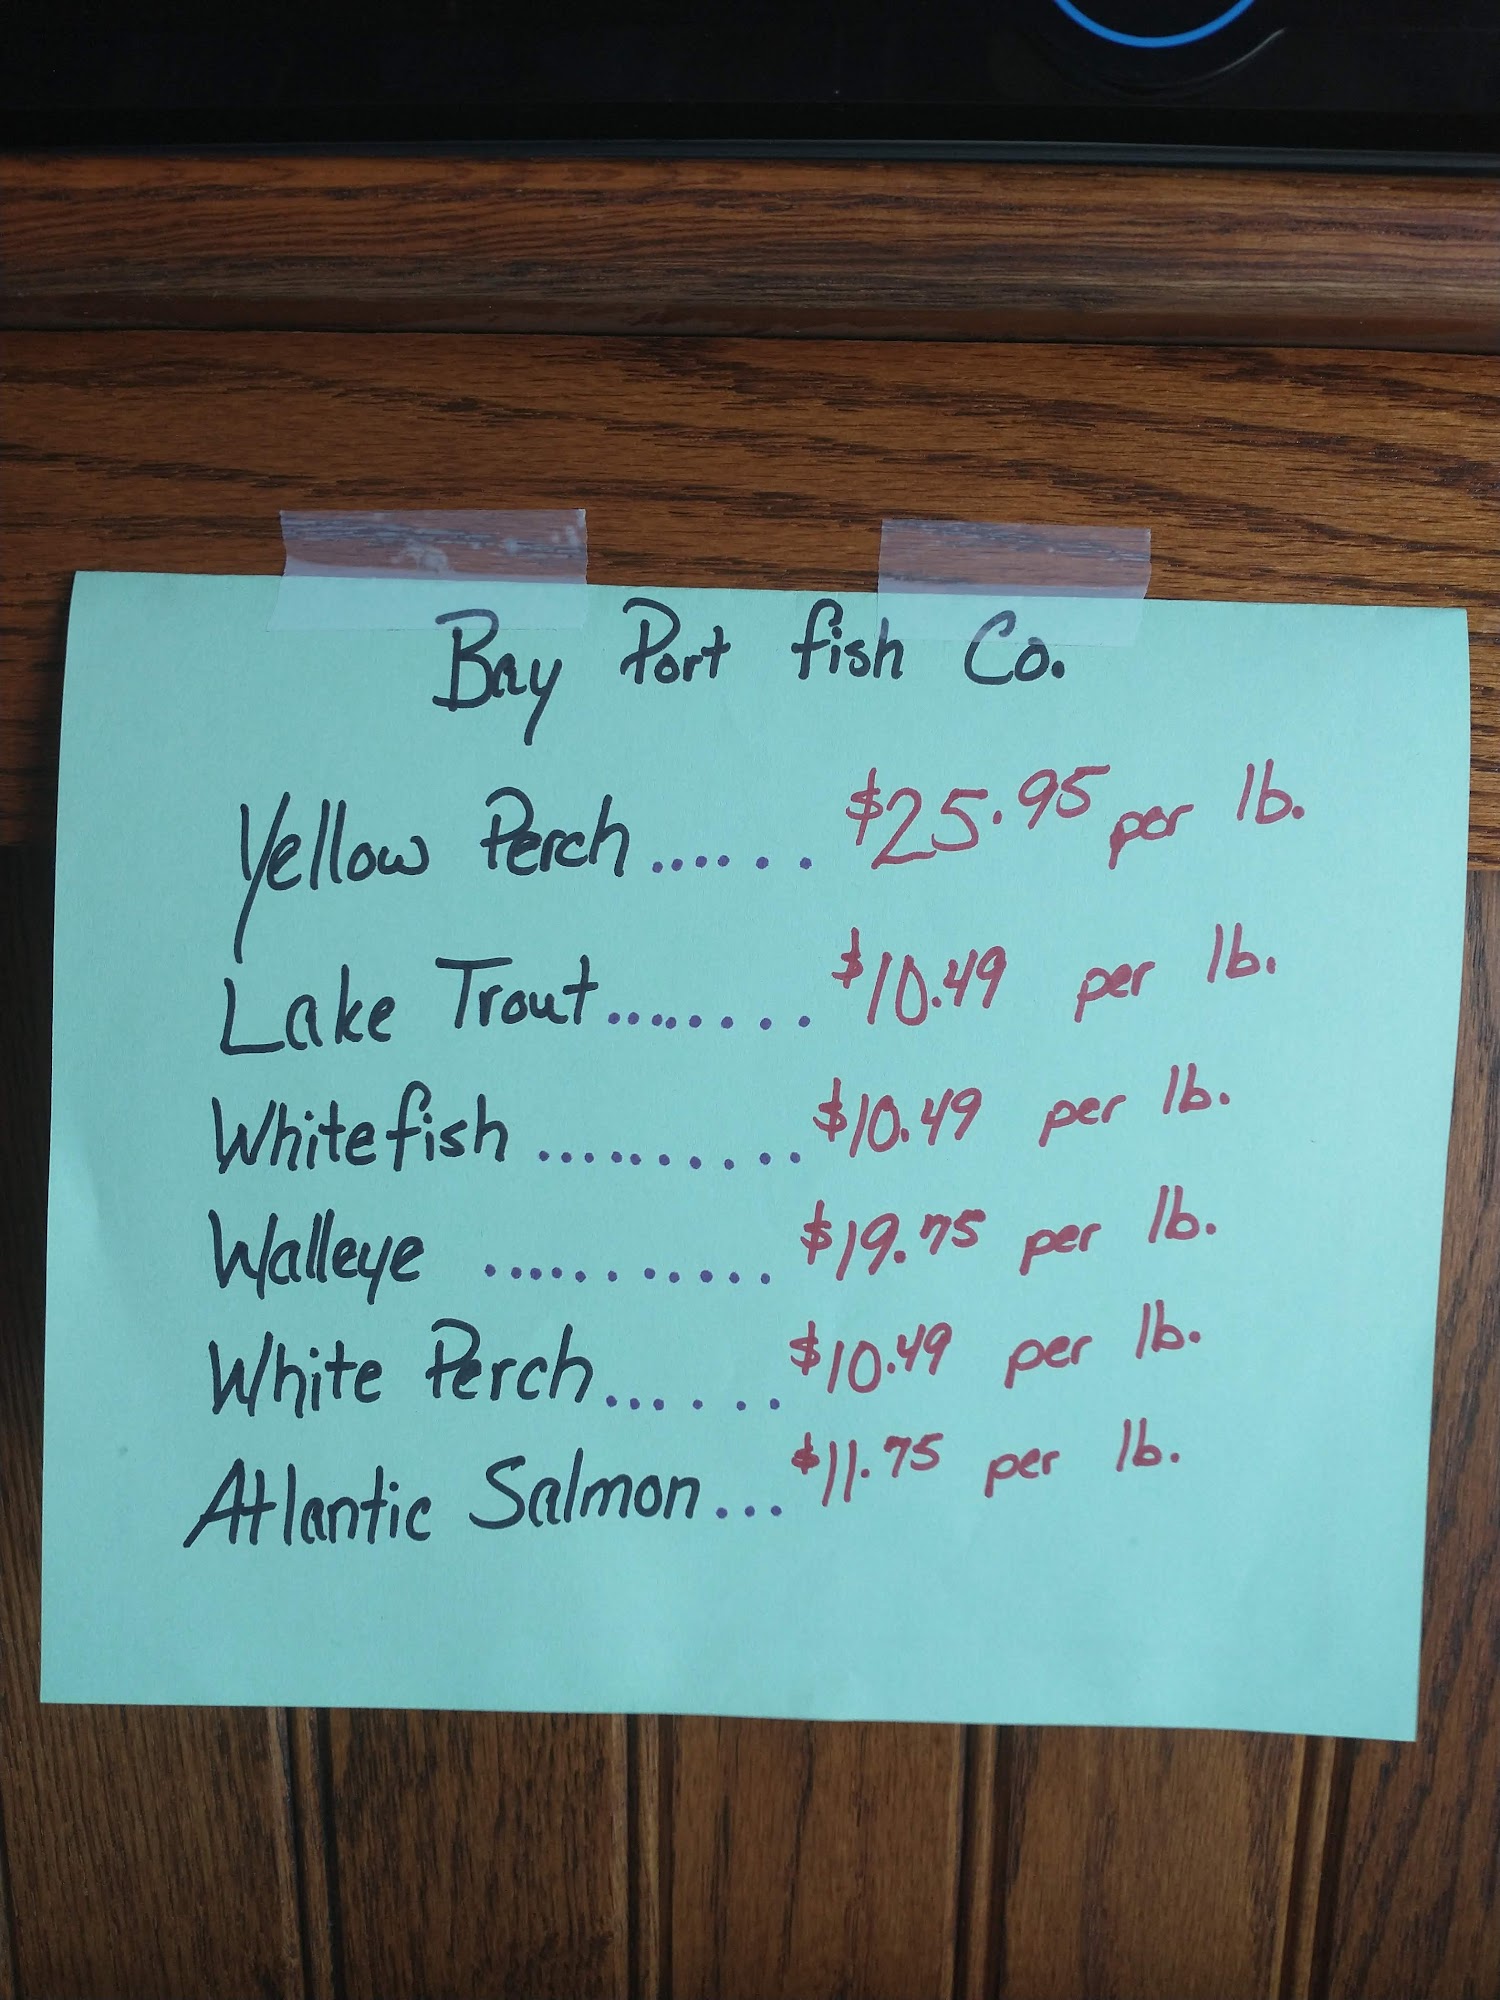 Bay Port fish Co.
Yellow Perch ....... $25.95 per lb.
Lake Trout ........ $10.49 per lb.
Whitefish ........... $10.49 per lb.
Walleye ............ $19.75 per lb.
White Perch ...... $10.49 per lb.
Atlantic Salmon ... $11.75 per lb.